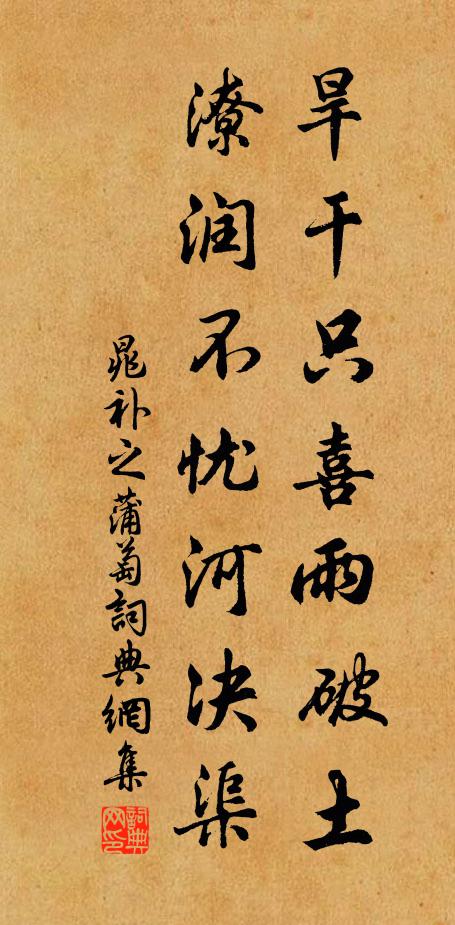 旱干只喜雨破土
潦润不忧河决渠
晁补之蒲萄詞典網集
詞典网印